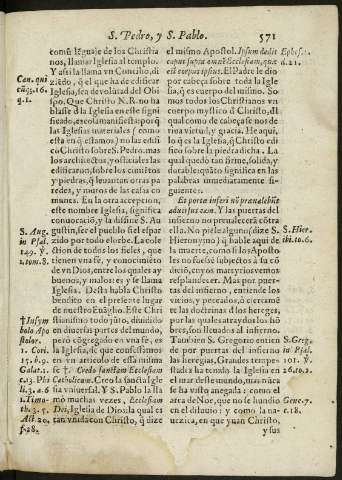 S. Pedro, y S. Pablo. 571
comũ lẽguaje de los Christia
nos, llamar Iglesia al templo.
Y assi la llama vn Concilio, di
ziedo, ẽ el que ha de edificar
Iglesia, sea de volũtad del Obi
spo. Que Christo N. R. no ha
blasse d̃ la Iglesia en este signi
ficado, es cosa manifiesta porq̃
las Iglesias materiales (como
està en q̃ estamos) no las edifi
co Christo sobre S. Pedro. mas
los architectos, y oficiales las
edificaron, sobre los cimiẽtos
y piedras, q̃ leuantan otras pa
redes, y muros de las casas co
munes. En la otra accepcion,
este nombre Iglesia, significa
conuocaciõ, y la difine S. Au
gustin, ser el pueblo fiel espar
zido por todo el orbe. La cole
ction de todos los fieles, que
tienen vna fè, y conocimiẽto
de vn Dios, entre los quales ay
buenos, y malos: es y se llama
Iglesia. Desta habla Christo
bendito en el presente lugar
de nuestro Euãglio. Este Chri
stianismo todo jũto, diuidido
en diuersas partes del mundo,
pero cõgregado en vna fè, es
la Iglesia, de que confessamos
en vn articulo de essa misma
fe †. Credo sanctam Ecclesiam
Catholicam. Creo la sancta Igle
sia vniuersal. Y S. Pablo la lla
mò muchas vezes, Ecclesiam
Dei, Iglesia de Dios: la qual es
tan vnida con Christo, q̃ dize
Can. qui
cũq; 16.
q. 1.
S. Aug.
in Psal.
149. &
2. tom. 8.
† In sym
bolo Apo
stolor.
1. Cori.
15. &
Galat. 1.
c. 13. Phi
li. 3. a. 6
1. Timo-
th. 3. 5.
Act. 20.
f. 28.
el mismo Apostol. Ipsum dedit
caput supra omnẽ Ecclesiam, quæ
est corpus ipsius. El Padre le dio
por cabeça sobre toda la Igle
sia, q̃ es cuerpo del mismo. So
mos todos los Christianos vn
cuerpo mystico d̃ Christo, del
qual como de cabeça se nos de
riua virtud, y gracia. He aqui,
lo q̃ es la Iglesia, q̃ Christo edi
fico sobre la piedra dicha. La
qual quedò tan firme, solida, y
durable: quãto significan las pa
labras immediatamente si-
guientes.
Et portæ inferi nõ præualebũt
aduersus eam. Y las puertas del
infierno no preualecerà cõtra
ella. No piẽse alguno (dize S.
Hieronymo) q̃ hable aqui de
la muerte, como si los Apostò-
les no fuessẽ subjectos à su cõ
diciõ, cuyos martyrios vemos
resplandecer. Mas por puer-
tas del infierno, entiende los
vicios, y peccados, ò ciertamẽ
te las doctrinas de los hereges,
por las quales atrahidos los hõ
bres, son lleuados al infierno.
Tambien S. Gregorio entien
de por puertas del infierno
las heregias. Grandes tempe-
stades ha tenido la Iglesia en
el mar de este mundo, mas nũca
se ha visto anegada: como el
arca de Noe, que no se hundio
en el diluuio: y como la na-
uezica, en que yuan Christo,
y sus
Ephes. 1.
d. 22.
S. Hier.
ibi. to. 6.
S. Greg.
in Psal.
101. &
26. to. 2.
Gene. 7.
c. 18.